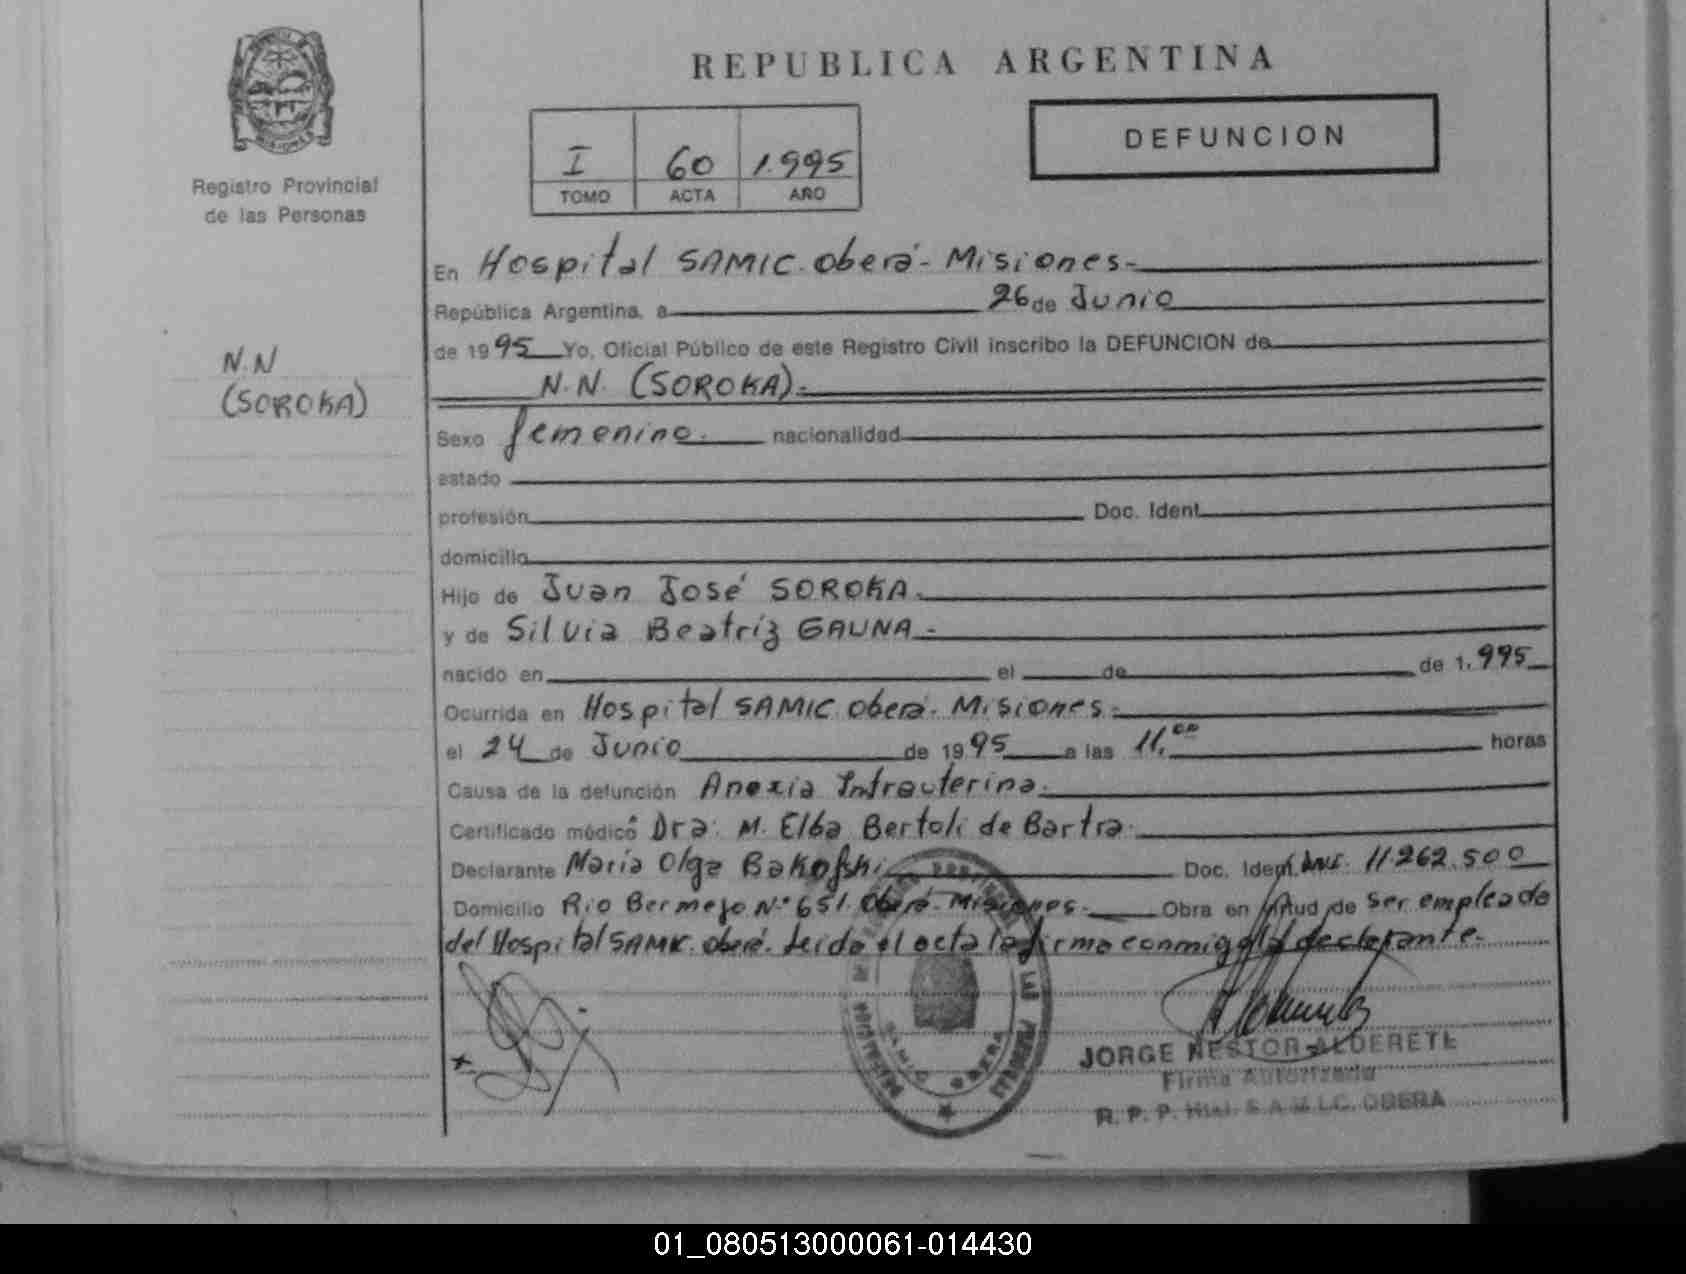 REPUBLICA ARGENTINA
DEFUNCION
I 60 1.995
TOMO ACTA AÑO
MISIONES
Registro Provincial
de las Personas
N.N
(SOROKA)
En Hospital SAMIC. Oberá - Misiones -
República Argentina, a 26 de Junio
de 1995 Yo, Oficial Público de este Registro Civil inscribo la DEFUNCION de
N.N. (SOROKA).
Sexo femenino. nacionalidad
estado
profesión Doc. Ident.
domicilio
Hijo de Juan José SOROKA.
y de Silvia Beatriz GAUNA.-
nacido en el de de 1.995
Ocurrida en Hospital SAMIC. Oberá. Misiones.
el 24 de Junio de 1995 a las 11.00 horas
Causa de la defunción Anoxia Intrauterina.
Certificado médico Dra: M. Elba Bertoli de Bartra.
Declarante María Olga Bakofski Doc. Ident. DNI. 11.262.500
Domicilio Rio Bermejo N° 651. Oberá. Misiones.- Obra en virtud de Ser empleada
del Hospital SAMIC. Oberá. Leida el acta la firma conmigo la declarante.
SAMIC OBERA
JORGE NESTOR ALDERETE
Firma Autorizada
R. P. P. Htal. S.A.M.I.C. OBERA
01_080513000061-014430